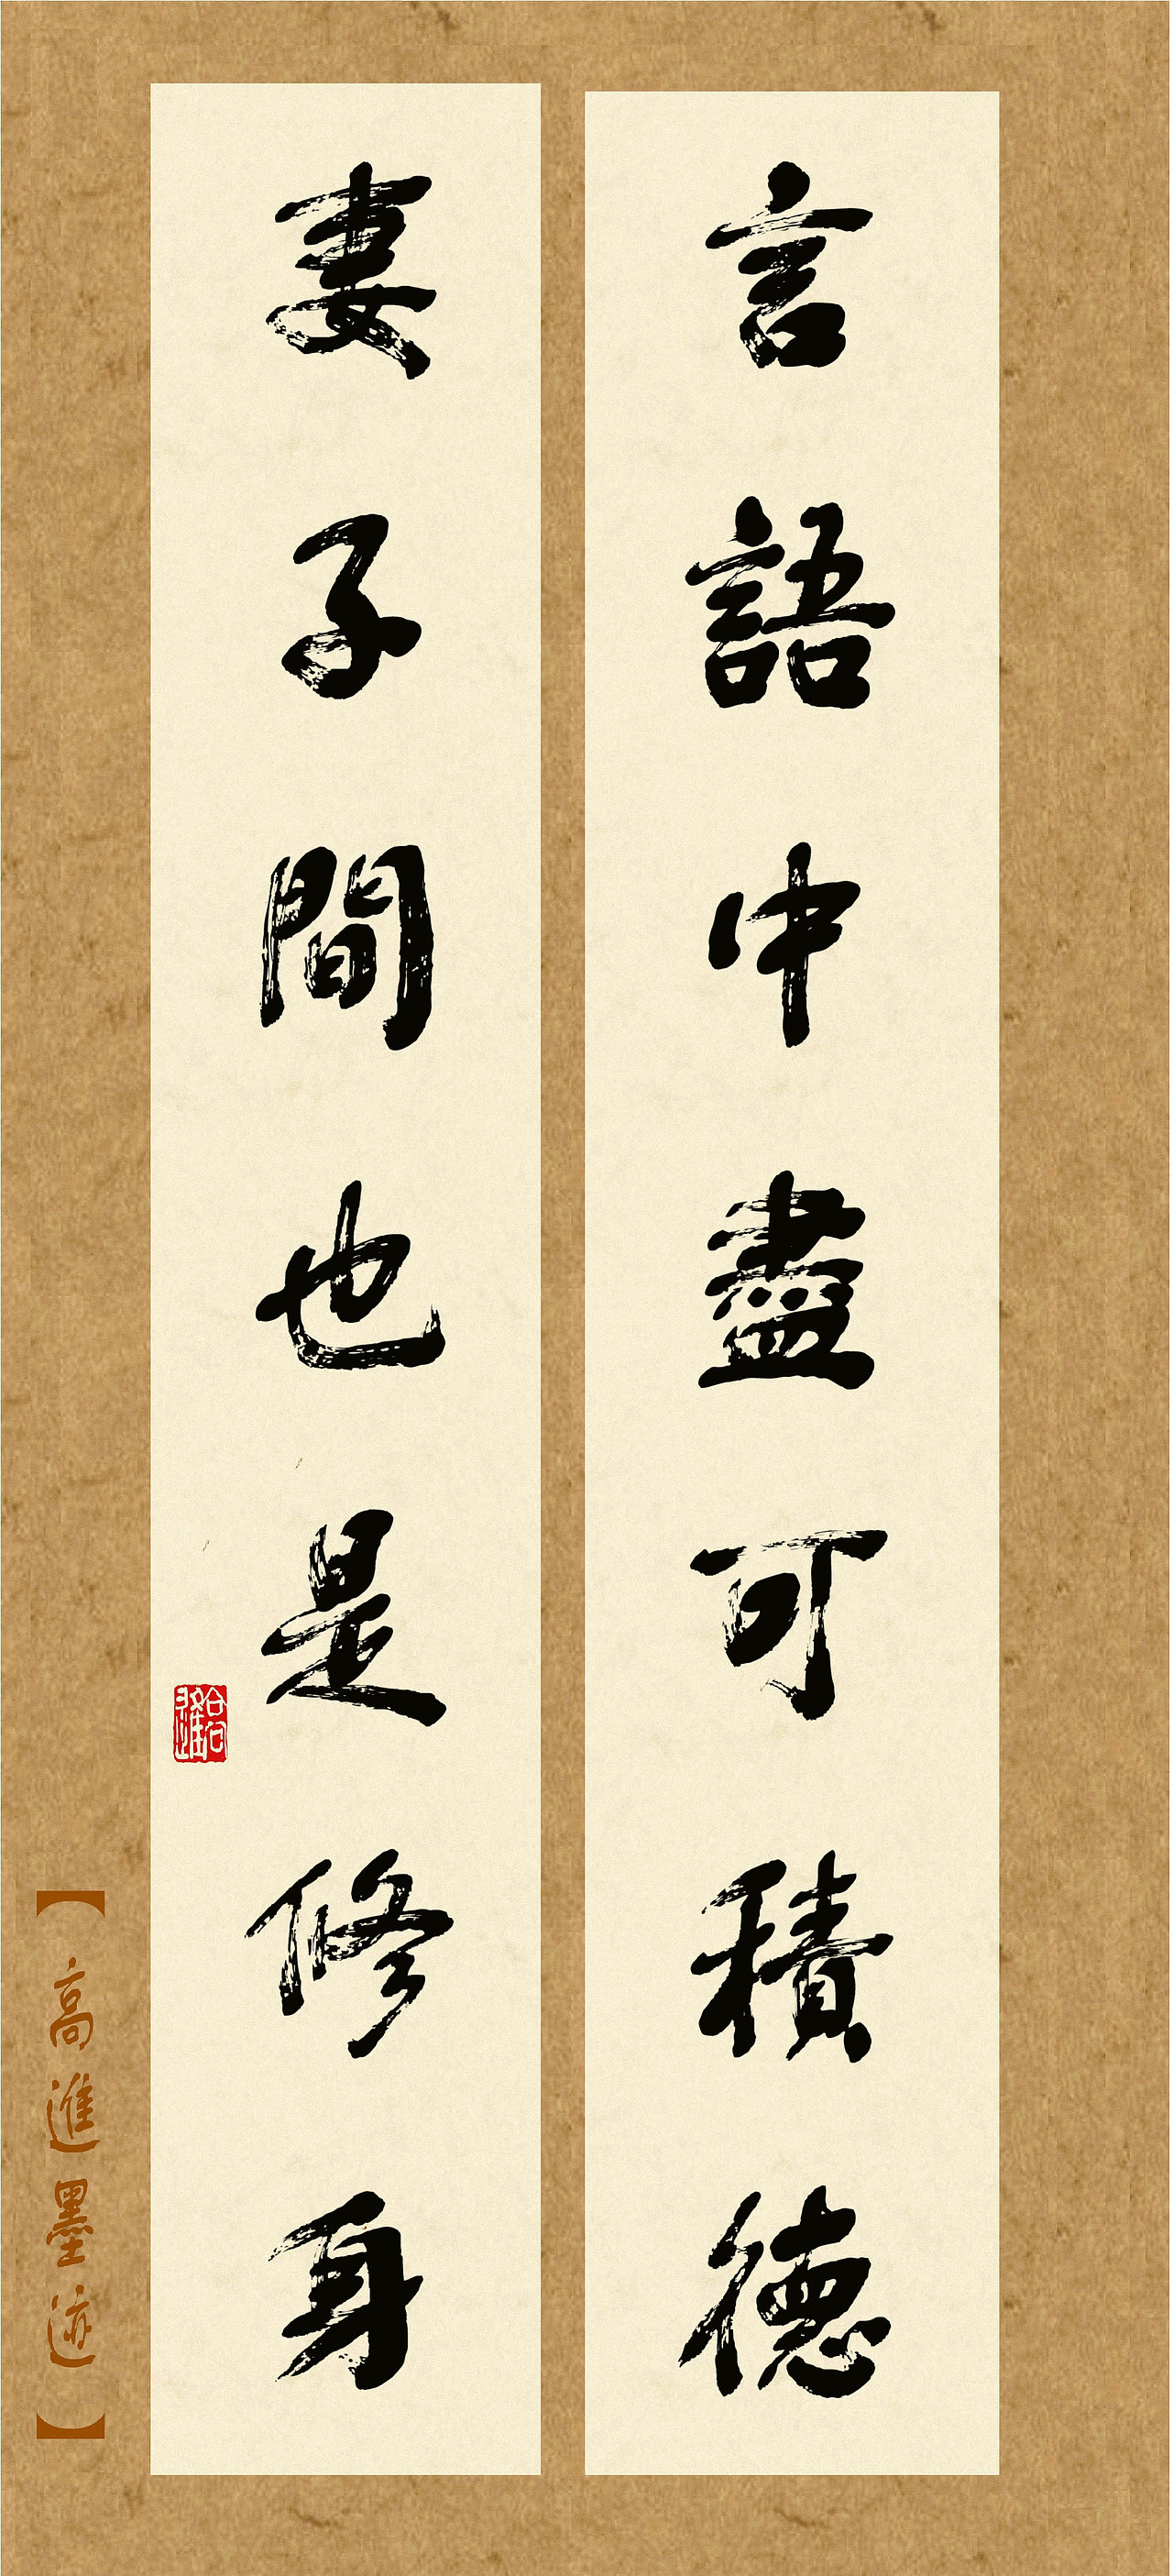 言語中盡可積德
妻子間也是修身
【高進墨迹】